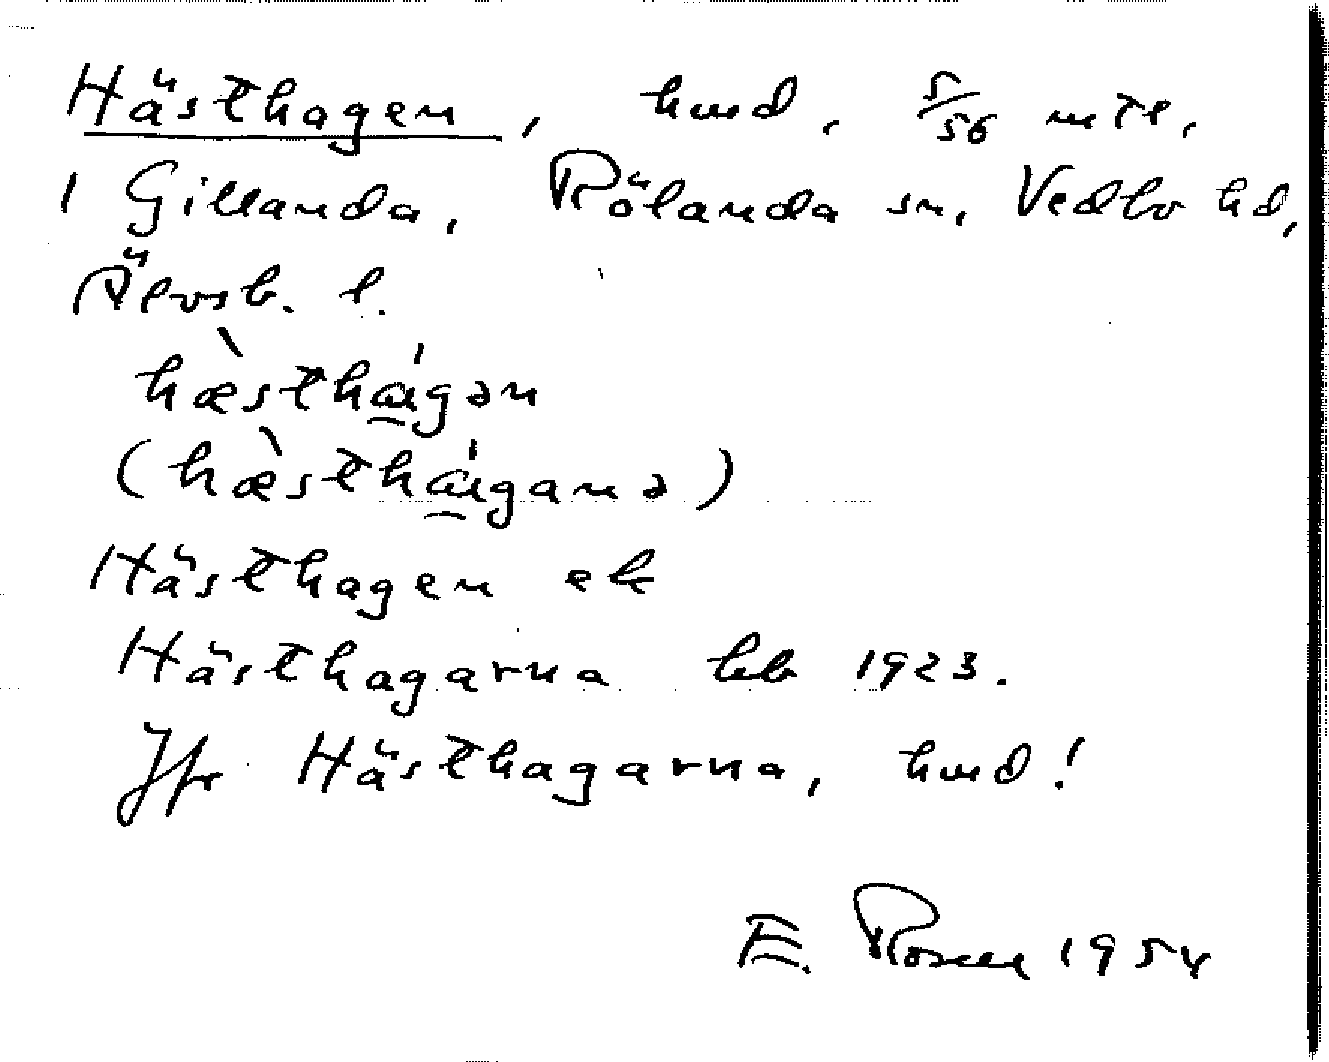 Hästhagen, hmd, 5/56 mtl,
i Gillanda, Rölanda sn, Vedbo hd,
Älvsb. l.
hæ̀sthá̲gən
(hæ̀sthá̲ganə)
Hästhagen ek
Hästhagarna kb 1923.
Jfr Hästhagarna, hmd!
E. Rosell 1954